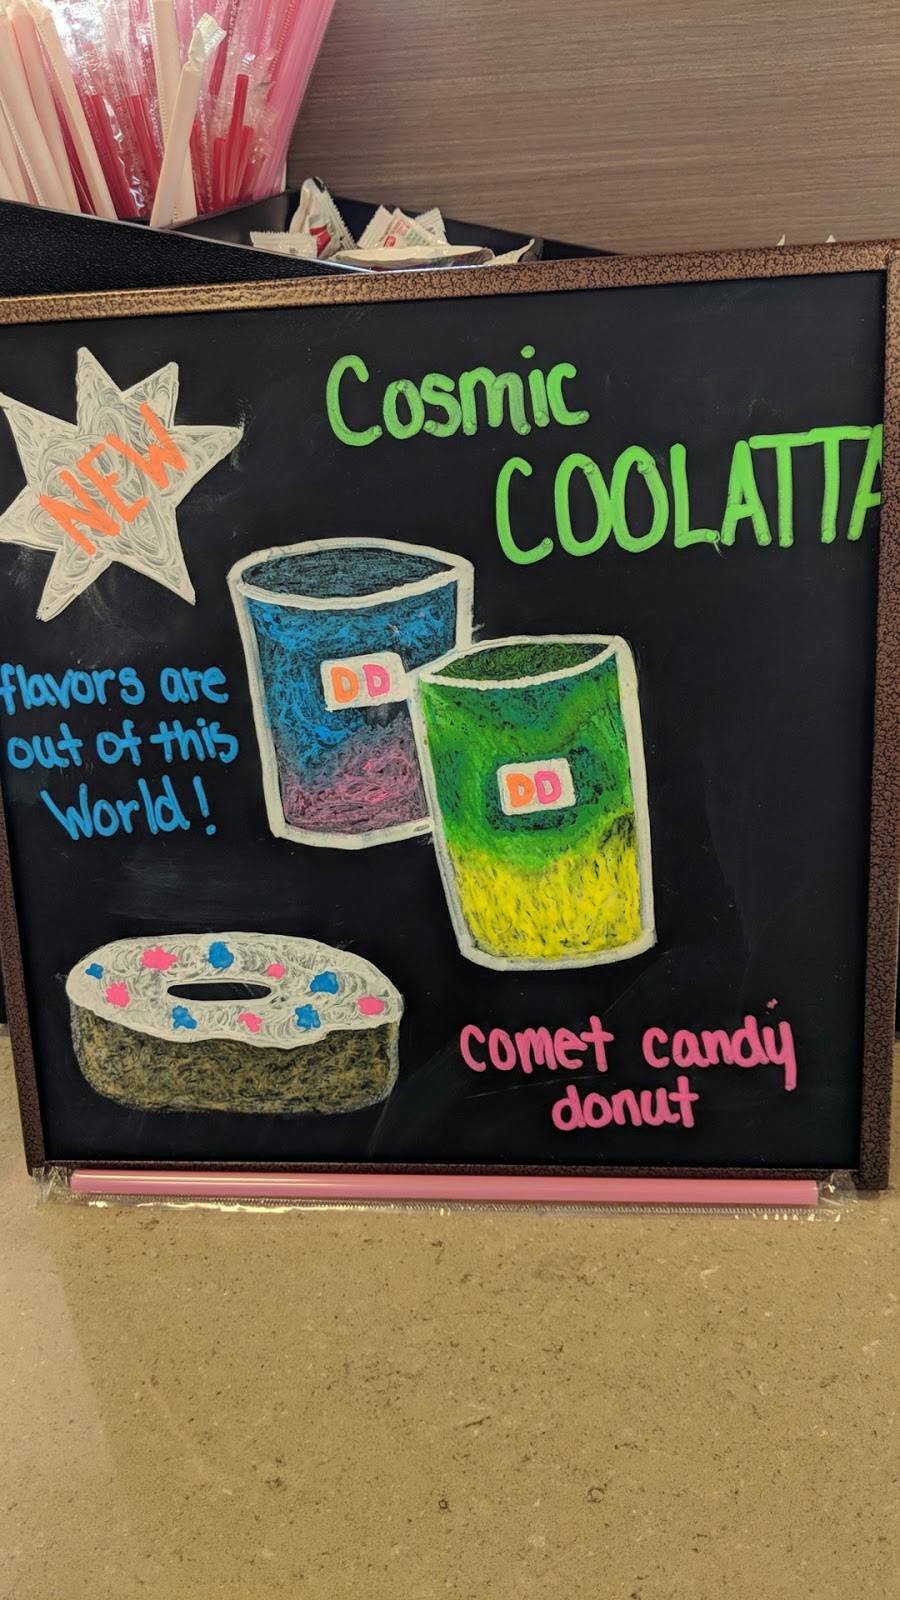 NEW
Cosmic
COOLATTA
flavors are
out of this
World!
DD
DD
comet candy
donut